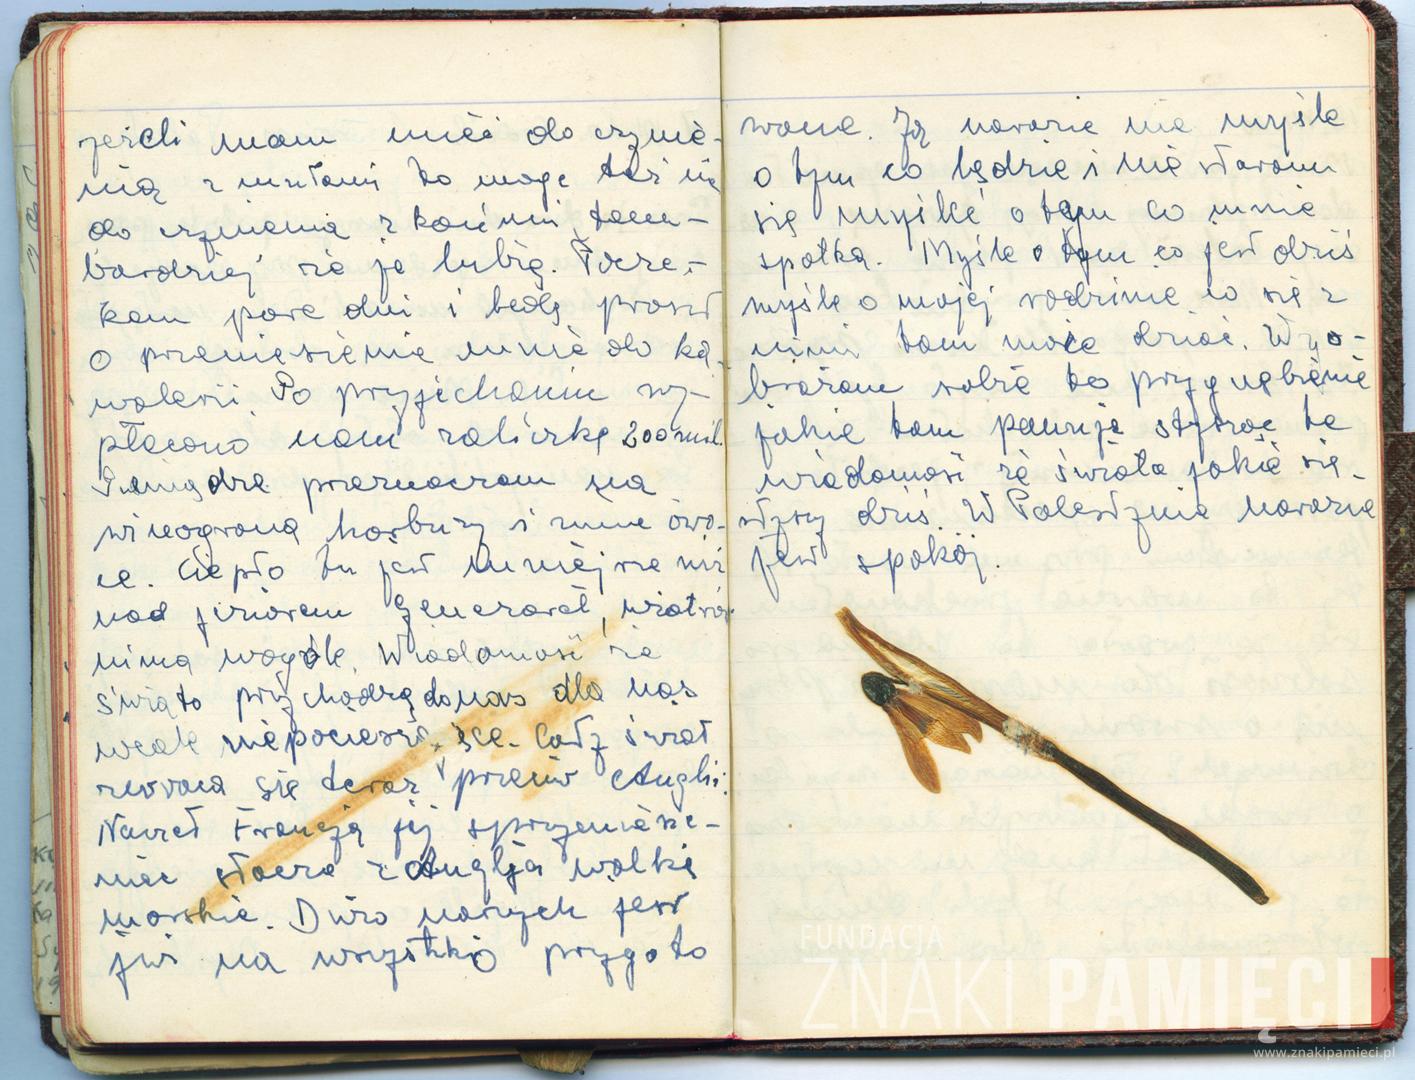 jeśli mam mieć do czynie-
nia z mułami to mogę też mieć
do czynienia z końmi, tem-
bardziej że ja lubię. Pocze-
kam parę dni i będę prosił
o przeniesienie mnie do ka-
walerii. Po przyjechaniu wy-
płacono nam zaliczkę 200 mil.
Pieniądze przeznaczam na
winogrona, harbuzy i inne owo-
ce. Ciepło tu jest mniejsze niż
nad jeziorem Genezaret, wiatrów
nima wogóle. Wiadomości ze
świata przychodzą do nas dla nas
wcale niepocieszające. Cały świat
zwraca się teraz przeciw Anglii.
Nawet Francja jej sprzymierze-
niec stacza z Anglją walki
morskie. Dużo naszych jest
już na wszystko przygoto
wane. Ja narazie nie myślę
o tym co będzie i nie staram
się myśleć o tym co mnie
spotka. Myślę o tym co jest dziś
myślę o mojej rodzinie co się z
nimi tam może dziać. Wyo-
brażam sobie to przygnębienie
jakie tam panuje słysząc te
wiadomości ze świata jakie się
słyszy dziś. W Palestynie narazie
jest spokój.
FUNDACJA
ZNAKI PAMIĘCI
www.znakipamieci.pl